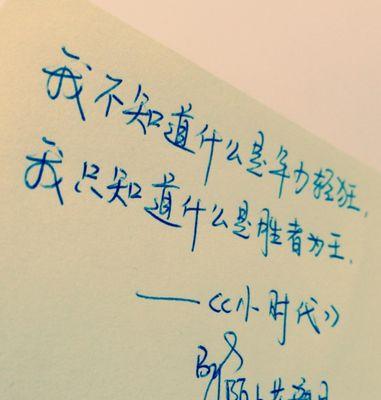 我不知道什么是年少轻狂,
我只知道什么是胜者为王.
——《小时代》
By